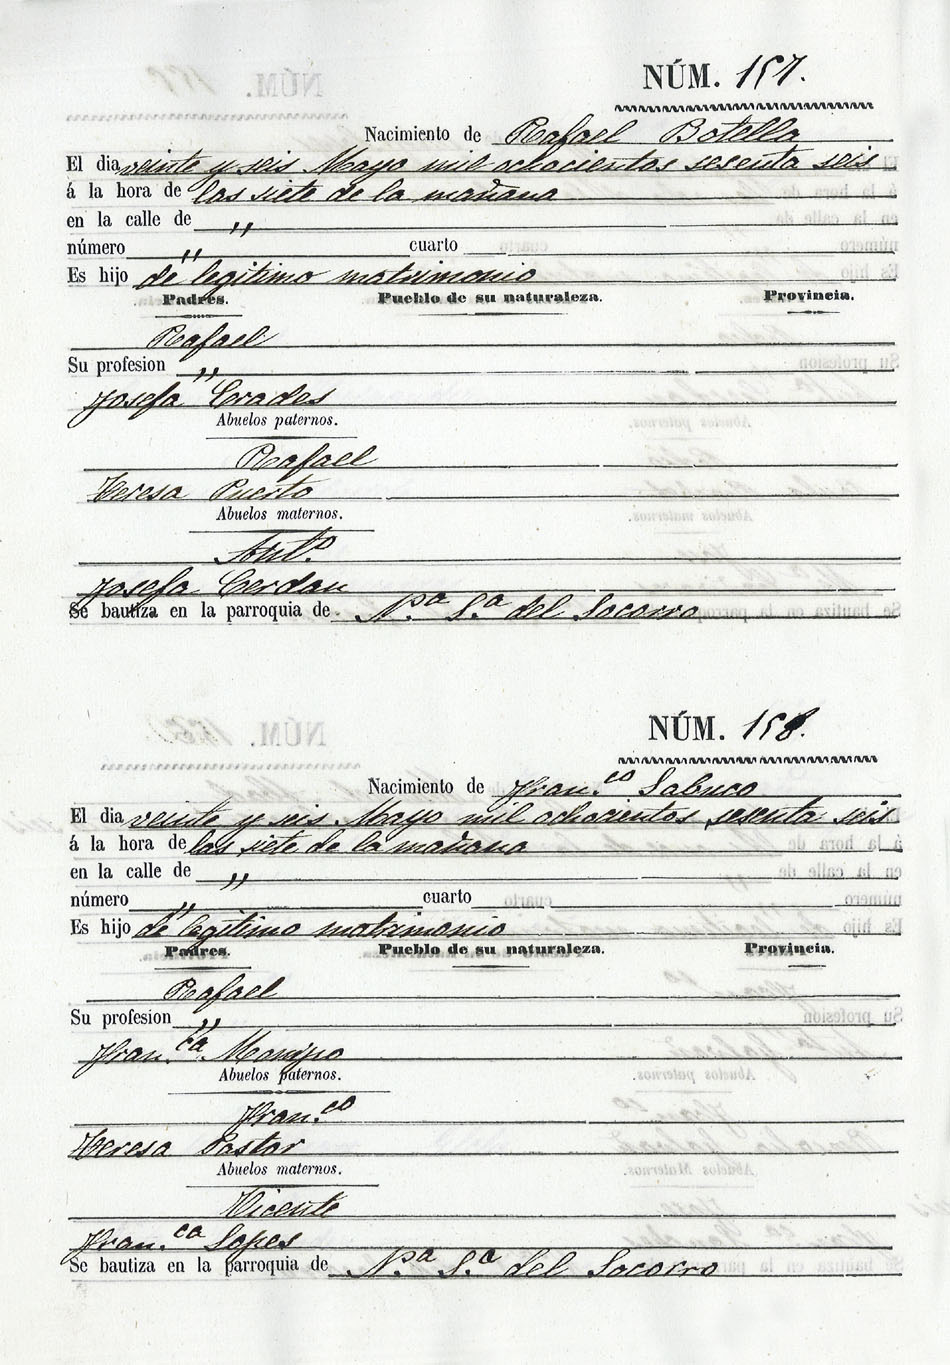 NÚM. 157.
Nacimiento de Rafael Botella
El dia veinte y seis Mayo mil ochocientos sesenta seis
á la hora de las siete de la mañana
en la calle de „
número „ cuarto
Es hijo de legitimo matrimonio
Padres. Pueblo de su naturaleza. Provincia.
Rafael
Su profesion „
Josefa Crades
Abuelos paternos.
Rafael
Teresa Puerto
Abuelos maternos.
Antº
Josefa Cerdan
Se bautiza en la parroquia de Nª Sª del Socorro
NÚM. 158.
Nacimiento de Fran.co Sabuco
El dia veinte y seis Mayo mil ochocientos sesenta seis
á la hora de las siete de la mañana
en la calle de „
número „ cuarto
Es hijo de legitimo matrimonio
Padres. Pueblo de su naturaleza. Provincia.
Rafael
Su profesion „
Fran.ca
Abuelos paternos.
Fran.co
Teresa Pastor
Abuelos maternos.
Vicente
Fran.ca Lopes
Se bautiza en la parroquia de Nª Sª del Socorro